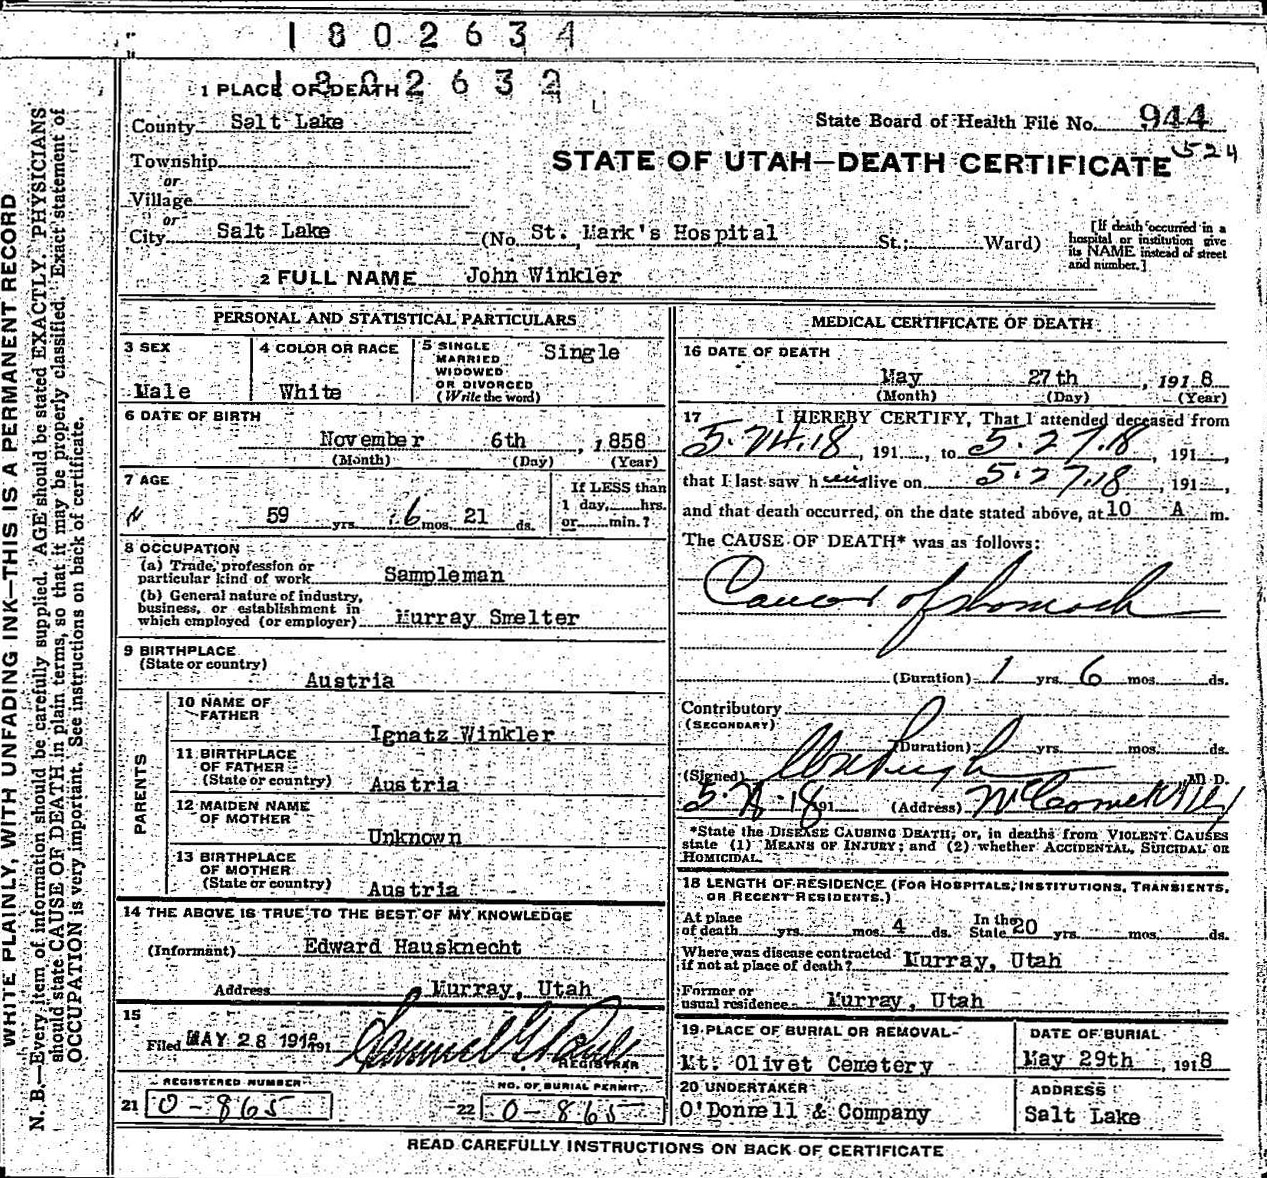 1802634
1802632
1 PLACE OF DEATH
County Salt Lake
State Board of Health File No. 944
524
Township
or
Village
or
STATE OF UTAH—DEATH CERTIFICATE
City Salt Lake (No. St. Mark's Hospital St.; Ward)
[If death occurred in a
hospital or institution give
its NAME instead of street
and number.]
2 FULL NAME John Winkler
PERSONAL AND STATISTICAL PARTICULARS
3 SEX
Male
4 COLOR OR RACE
White
5 SINGLE
MARRIED
WIDOWED
OR DIVORCED
(Write the word)
Single
6 DATE OF BIRTH
November 6th, 1858
(Month) (Day) (Year)
7 AGE
59 yrs. 6 mos. 21 ds.
If LESS than
1 day, hrs.
or min.?
8 OCCUPATION
(a) Trade, profession or
particular kind of work Sampleman
(b) General nature of industry,
business, or establishment in
which employed (or employer) Murray Smelter
9 BIRTHPLACE
(State or country)
Austria
PARENTS
10 NAME OF
FATHER
Ignatz Winkler
11 BIRTHPLACE
OF FATHER
(State or country) Austria
12 MAIDEN NAME
OF MOTHER
Unknown
13 BIRTHPLACE
OF MOTHER
(State or country) Austria
14 THE ABOVE IS TRUE TO THE BEST OF MY KNOWLEDGE
(Informant) Edward Hausknecht
Address Murray, Utah
15
Filed MAY 28 1918 191
REGISTRAR
REGISTERED NUMBER
21 0-865
NO. OF BURIAL PERMIT
22 0-865
MEDICAL CERTIFICATE OF DEATH
16 DATE OF DEATH
May 27th, 1918
(Month) (Day) (Year)
17 I HEREBY CERTIFY, That I attended deceased from
5.24.18, 191, to 5.27.18, 191,
that I last saw h im alive on 5.27.18, 191,
and that death occurred, on the date stated above, at 10 A m.
The CAUSE OF DEATH* was as follows:
Cancer of stomach
(Duration) 1 yrs. 6 mos. ds.
Contributory
(SECONDARY)
(Duration) yrs. mos. ds.
(Signed) M. D.
191 (Address)
*State the DISEASE CAUSING DEATH; or, in deaths from VIOLENT CAUSES
state (1) MEANS OF INJURY; and (2) whether ACCIDENTAL, SUICIDAL OR
HOMICIDAL.
18 LENGTH OF RESIDENCE (FOR HOSPITALS, INSTITUTIONS, TRANSIENTS,
OR RECENT RESIDENTS.)
At place
of death yrs. mos. 4 ds. In the State 20 yrs. mos. ds.
Where was disease contracted
if not at place of death? Murray, Utah
Former or
usual residence Murray, Utah
19 PLACE OF BURIAL OR REMOVAL
Mt. Olivet Cemetery
DATE OF BURIAL
May 29th, 1918
20 UNDERTAKER
O'Donnell & Company
ADDRESS
Salt Lake
READ CAREFULLY INSTRUCTIONS ON BACK OF CERTIFICATE
WRITE PLAINLY, WITH UNFADING INK—THIS IS A PERMANENT RECORD
N. B.—Every item of information should be carefully supplied. AGE should be stated EXACTLY. PHYSICIANS
should state CAUSE OF DEATH in plain terms, so that it may be properly classified. Exact statement of
OCCUPATION is very important. See instructions on back of certificate.